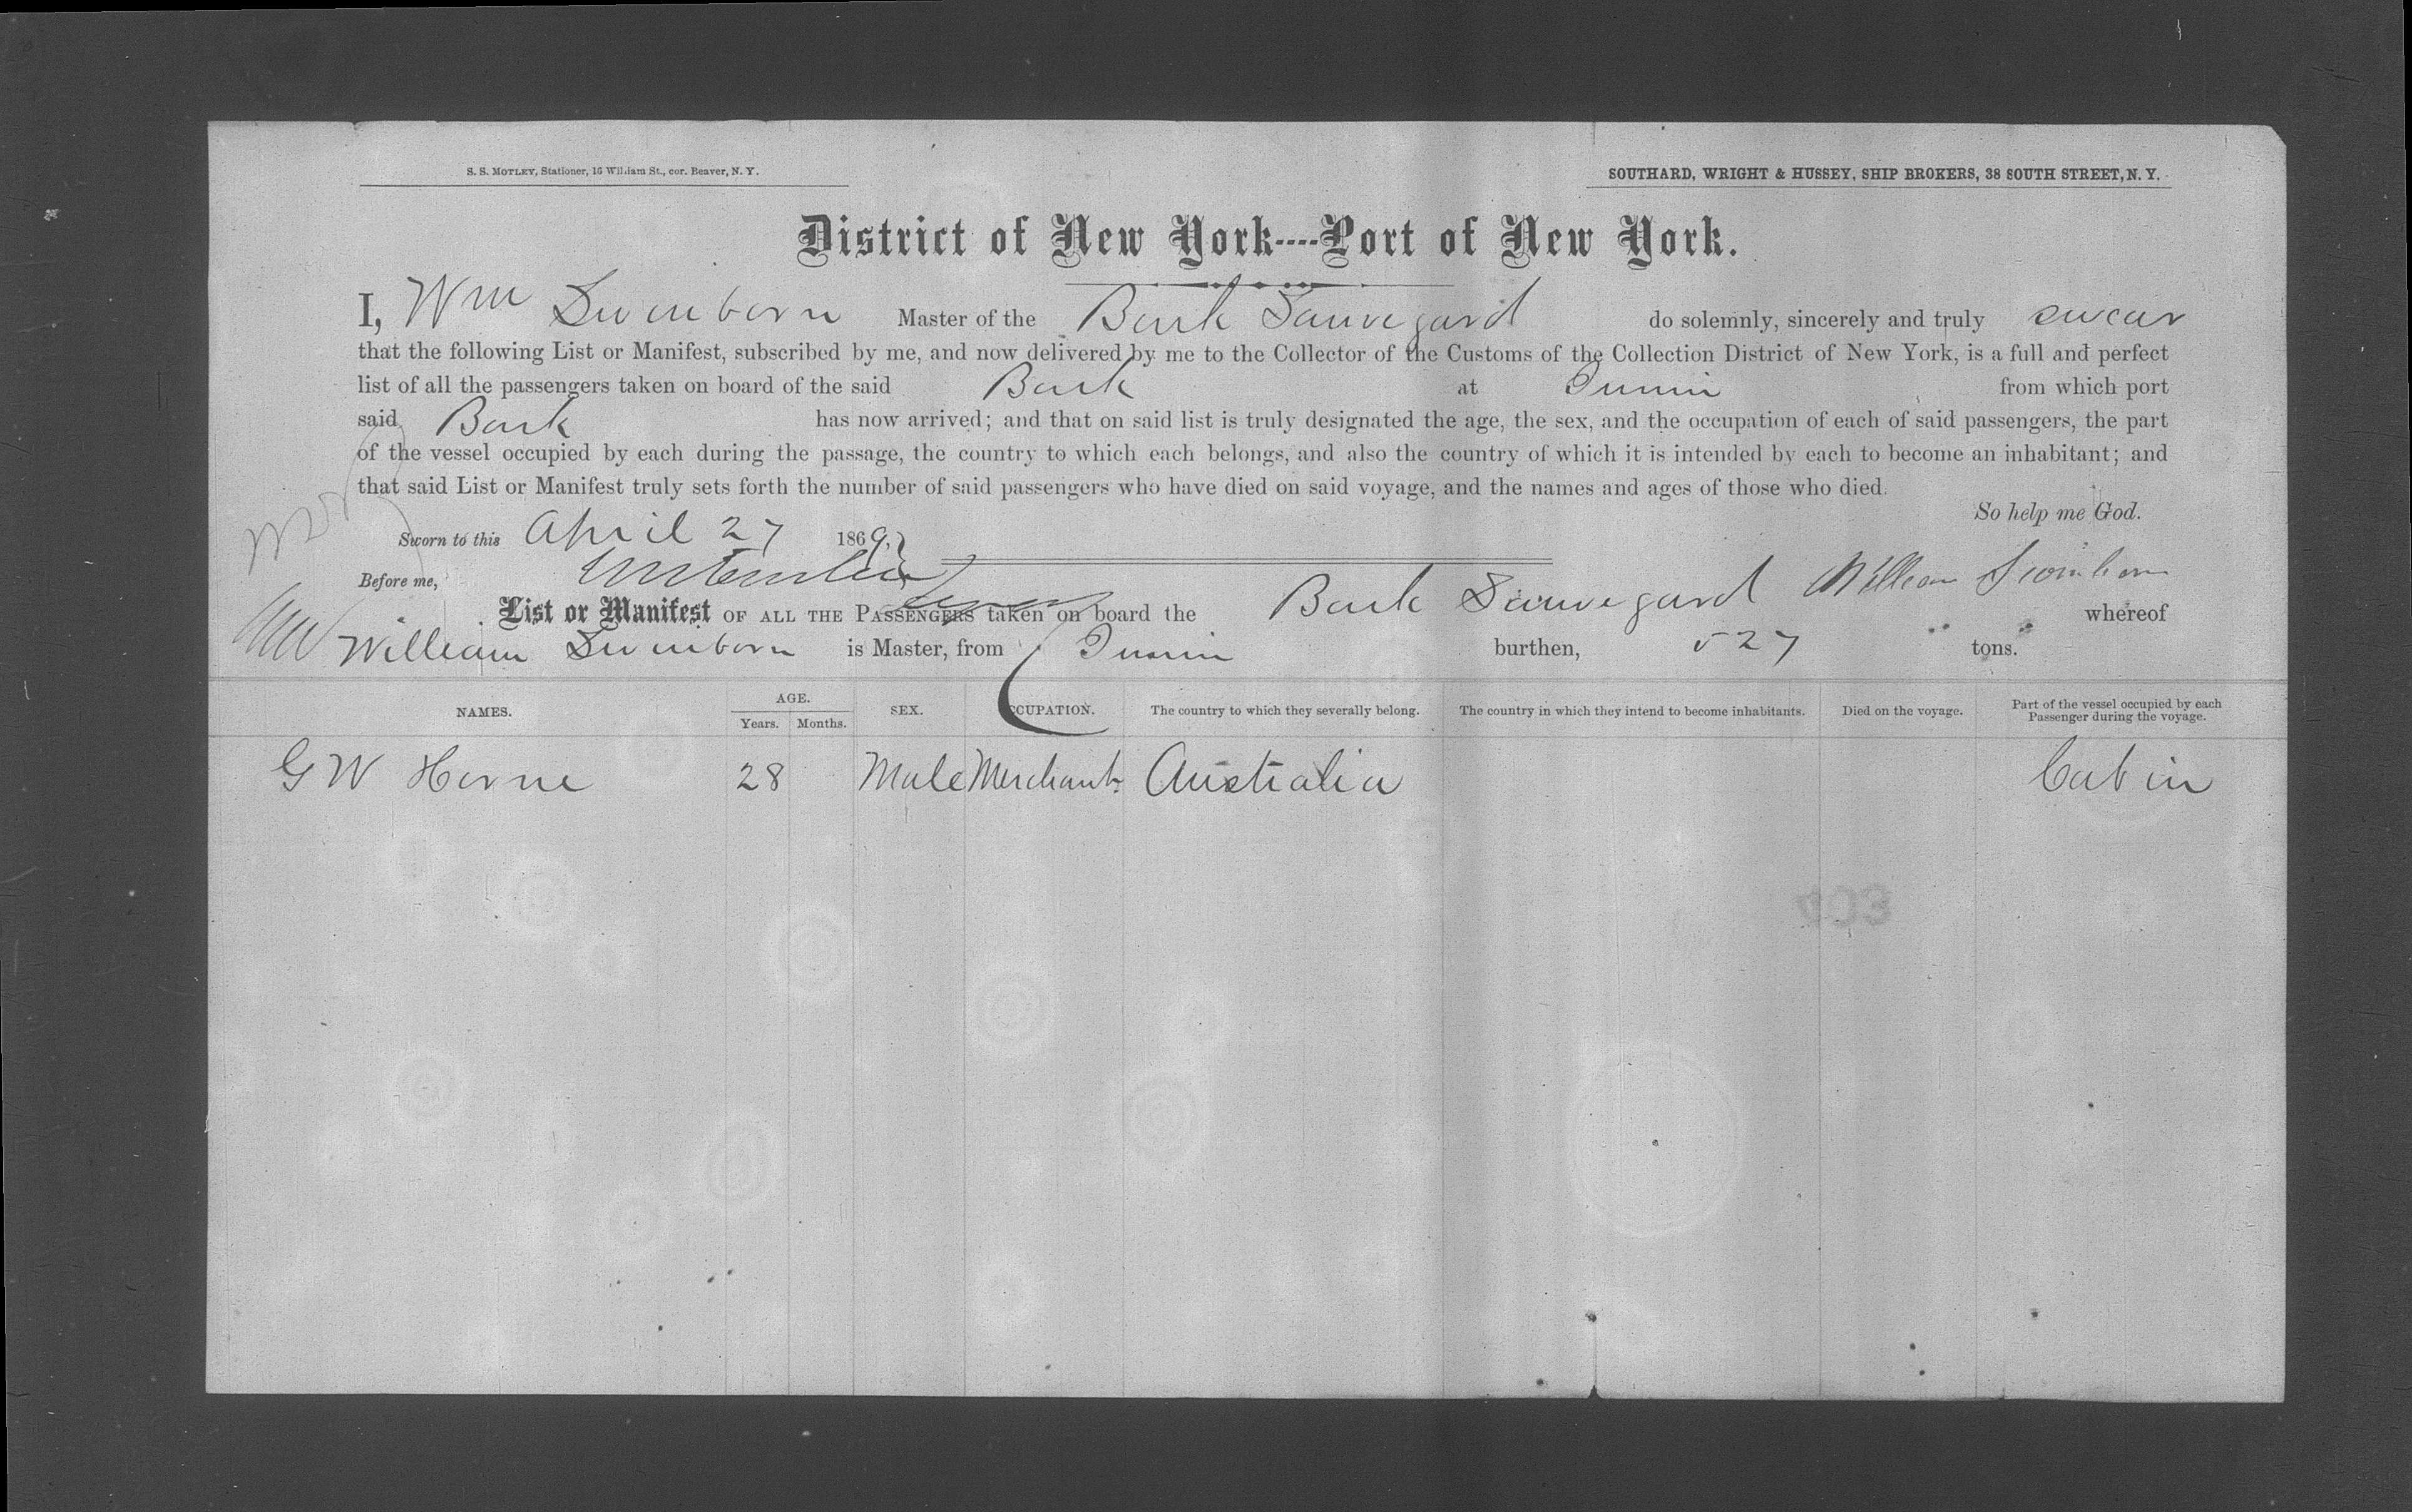 S. S. MOTLEY, Stationer, 16 William St., cor. Beaver, N. Y.
SOUTHARD, WRIGHT & HUSSEY, SHIP BROKERS, 38 SOUTH STREET, N. Y.
District of New York----Port of New York.
I, Wm Swinborn Master of the Bark Sauvegard do solemnly, sincerely and truly swear
that the following List or Manifest, subscribed by me, and now delivered by me to the Collector of the Customs of the Collection District of New York, is a full and perfect
list of all the passengers taken on board of the said Bark at from which port
said Bark has now arrived; and that on said list is truly designated the age, the sex, and the occupation of each of said passengers, the part
of the vessel occupied by each during the passage, the country to which each belongs, and also the country of which it is intended by each to become an inhabitant; and
that said List or Manifest truly sets forth the number of said passengers who have died on said voyage, and the names and ages of those who died.
So help me God.
Sworn to this April 27 1869,
Before me,
William Swinborn
List or Manifest OF ALL THE PASSENGERS taken on board the Bark Sauvegard whereof
William Swinborn is Master, from burthen, 527 tons.
NAMES. AGE. Years. Months. SEX. OCCUPATION. The country to which they severally belong. The country in which they intend to become inhabitants. Died on the voyage. Part of the vessel occupied by each Passenger during the voyage.
G W Horne 28 Male Merchant Australia Cabin
403